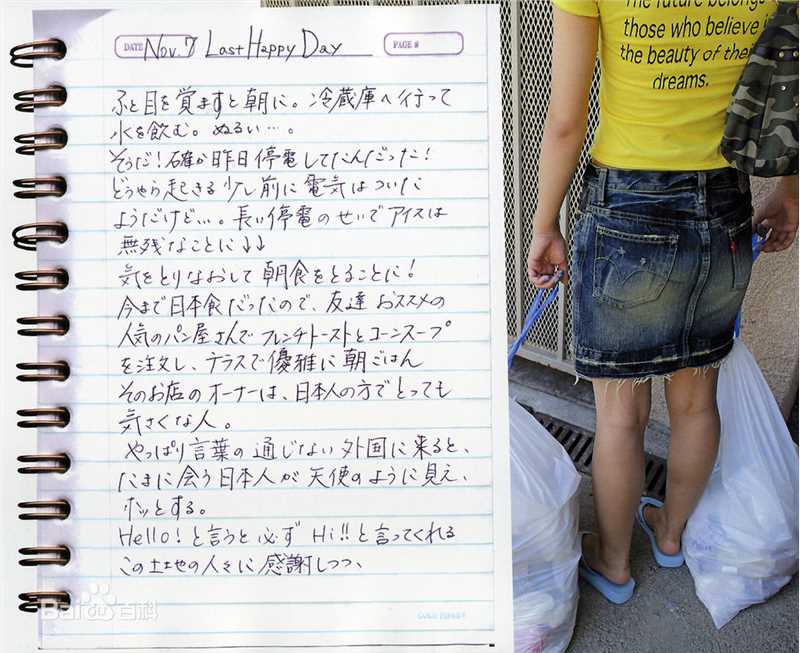 DATE Nov. 7 Last Happy Day PAGE #
ふと目を覚ますと朝に。冷蔵庫へ行って
水を飲む。ぬるい…。
そうだ!確か昨日停電してたんだった!
どうやら起きる少し前に電気はついた
ようだけど…。長い停電のせいでアイスは
無残なことに↓↓
気をとりなおして朝食をとることに!
今まで日本食だったので、友達おススメの
人気のパン屋さんでフレンチトーストとコーンスープ
を注文し、テラスで優雅に朝ごはん
そのお店のオーナーは、日本人の方でとっても
気さくな人。
やっぱり言葉の通じない外国に来ると、
たまに会う日本人が天使のように見え、
ホッとする。
Hello!と言うと必ずHi!!と言ってくれる
この土地の人々に感謝しつつ、
Baidu百科
The future belongs
those who believe i
the beauty of thei
dreams.